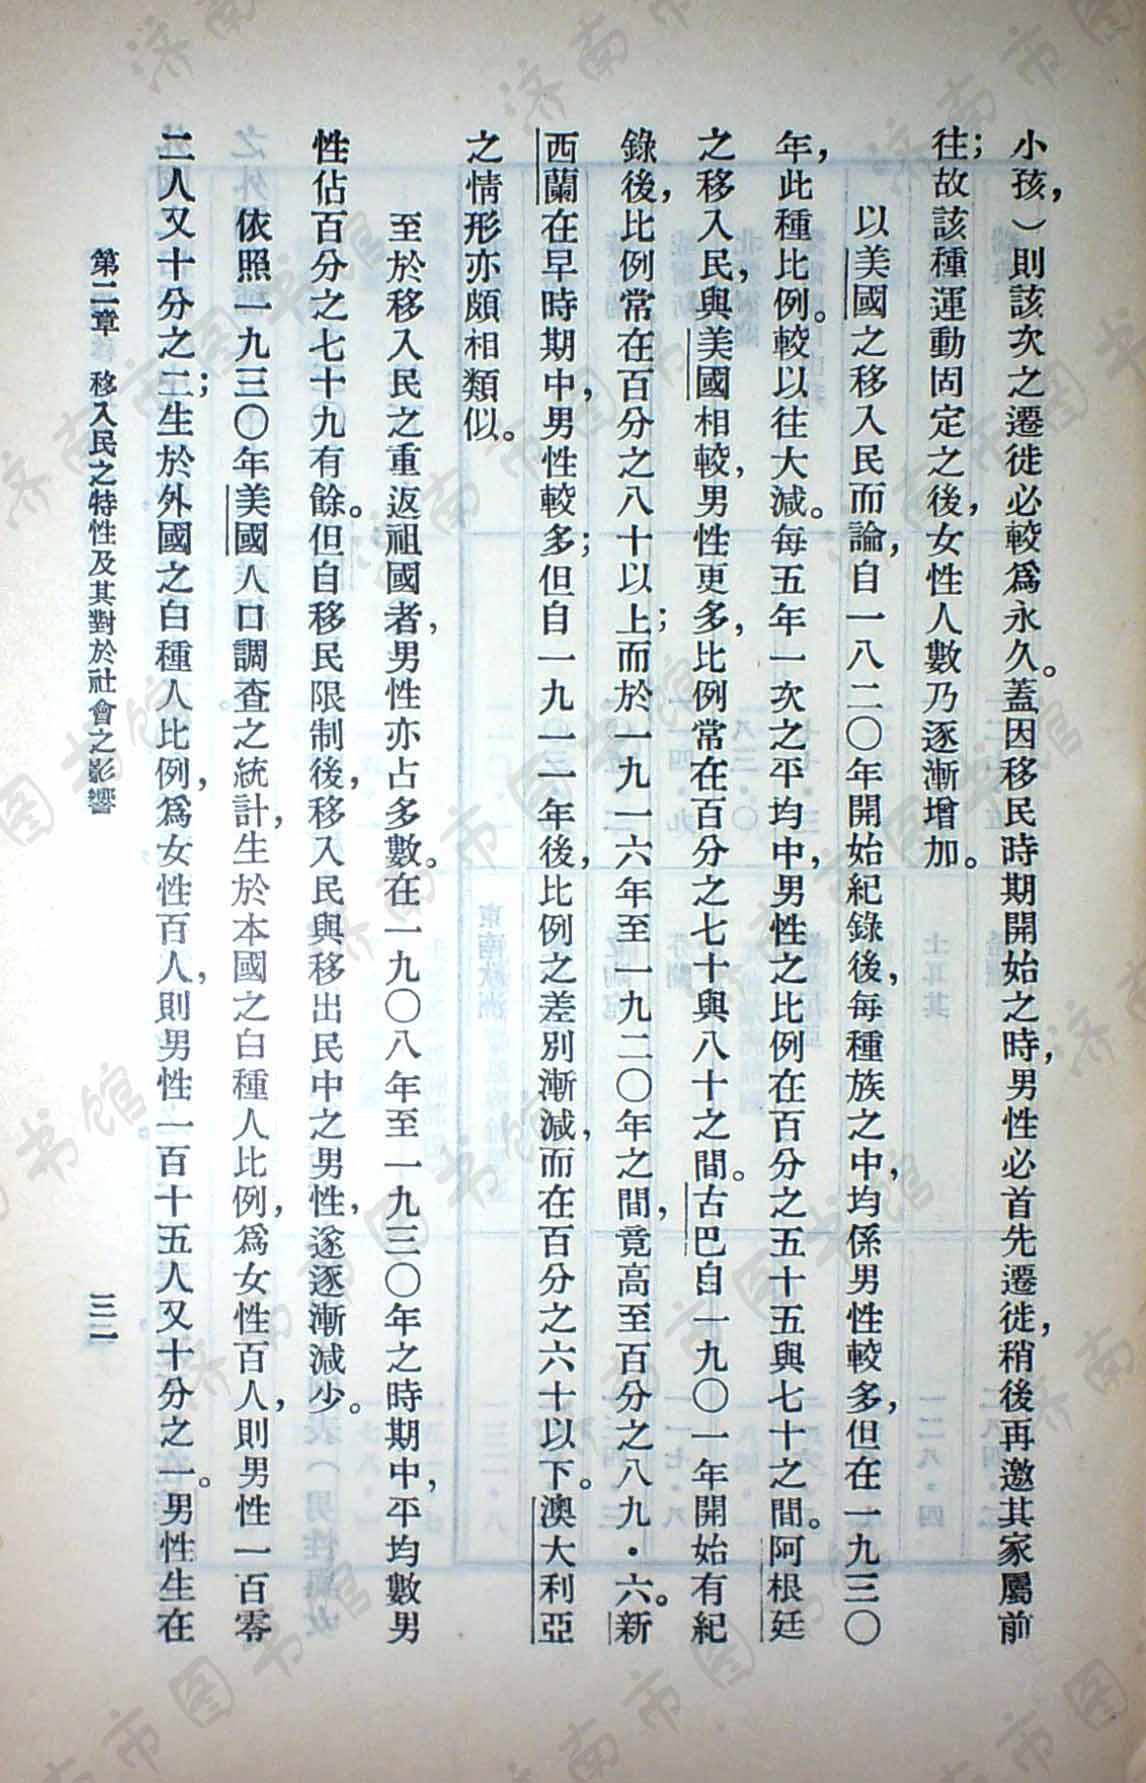 小孩，）則該次之遷徙必較爲永久。蓋因移民時期開始之時，男性必首先遷徙，稍後再邀其家屬前
往；故該種運動固定之後，女性人數乃逐漸增加。
以美國之移入民而論，自一八二〇年開始紀錄後，每種族之中，均係男性較多，但在一九三〇
年，此種比例。較以往大減。每五年一次之平均中，男性之比例在百分之五十五與七十之間。阿根廷
之移入民，與美國相較，男性更多，比例常在百分之七十與八十之間。古巴自一九〇一年開始有紀
錄後，比例常在百分之八十以上；而於一九一六年至一九二〇年之間，竟高至百分之八九·六。新
西蘭在早時期中，男性較多；但自一九一一年後，比例之差別漸減，而在百分之六十以下。澳大利亞
之情形亦頗相類似。
至於移入民之重返祖國者，男性亦占多數。在一九〇八年至一九三〇年之時期中，平均數男
性佔百分之七十九有餘。但自移民限制後，移入民與移出民中之男性，遂逐漸減少。
依照一九三〇年美國人口調查之統計，生於本國之白種人比例，爲女性百人，則男性一百零
二人又十分之二；生於外國之白種人比例，爲女性百人，則男性一百十五人又十分之一。男性生在
第二章 移入民之特性及其對於社會之影響
三一
济南市图书馆